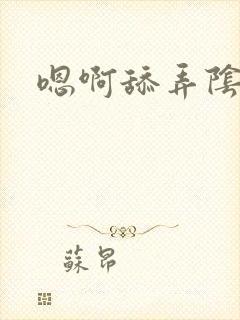 嗯啊舔弄陰
蘇昂